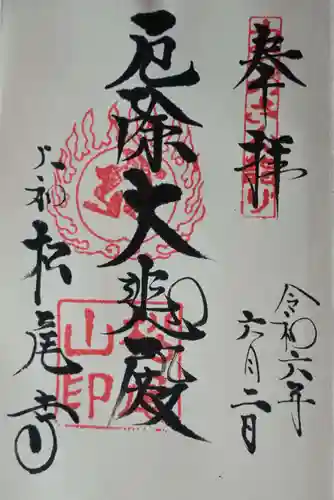 奉拝
令和六年
六月二日
厄除大悲殿
大和 松尾寺
山印